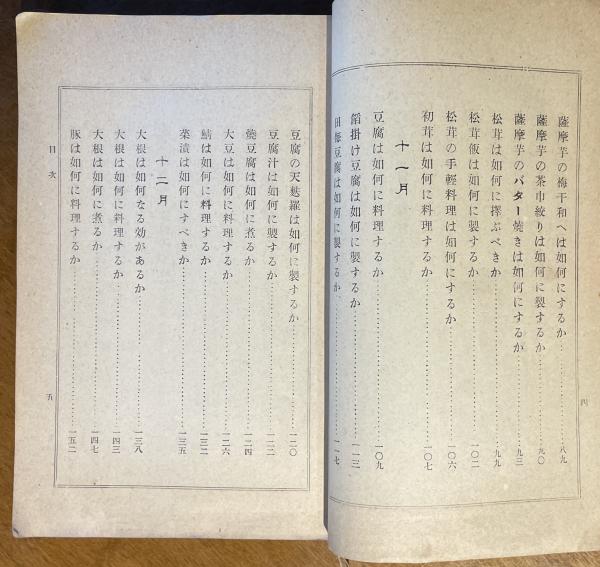 薩摩芋の梅干和へは如何にするか……八九
薩摩芋の茶巾絞りは如何に製するか……九〇
薩摩芋のバター燒きは如何にするか……九三
松茸は如何に擇ぶべきか……九九
松茸飯は如何に製するか……一〇二
松茸の手輕料理は如何にするか……一〇六
初茸は如何に料理するか……一〇七
十一月
豆腐は如何に料理するか……一〇九
餡掛け豆腐は如何に製するか……一一三
田樂豆腐は如何に製するか……一一七
四
豆腐の天麩羅は如何に製するか……一二〇
豆腐汁は如何に製するか……一二二
燒豆腐は如何に煮るか……一二四
大豆は如何に料理するか……一二六
鯖は如何に料理するか……一三二
菜漬は如何にすべきか……一三五
十二月
大根は如何なる効があるか……一三八
大根は如何に料理するか……一四三
大根は如何に煮るか……一四七
豚は如何に料理するか……一五二
目次
五